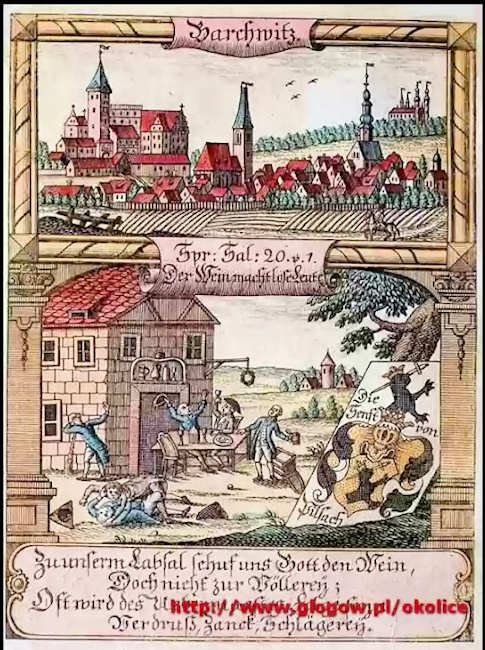 Parchwitz.
Spr: Sal: 20. v. 1.
Der Wein macht lose Leute
Die
Senft
von
Pilsach
Zu unserm Labsal schuf uns Gott den Wein,
Doch nicht zur Völlerey;
Oft wird des
http://www.glogow.pl/okolice
Verdruß, Zanck, Schlägerey.